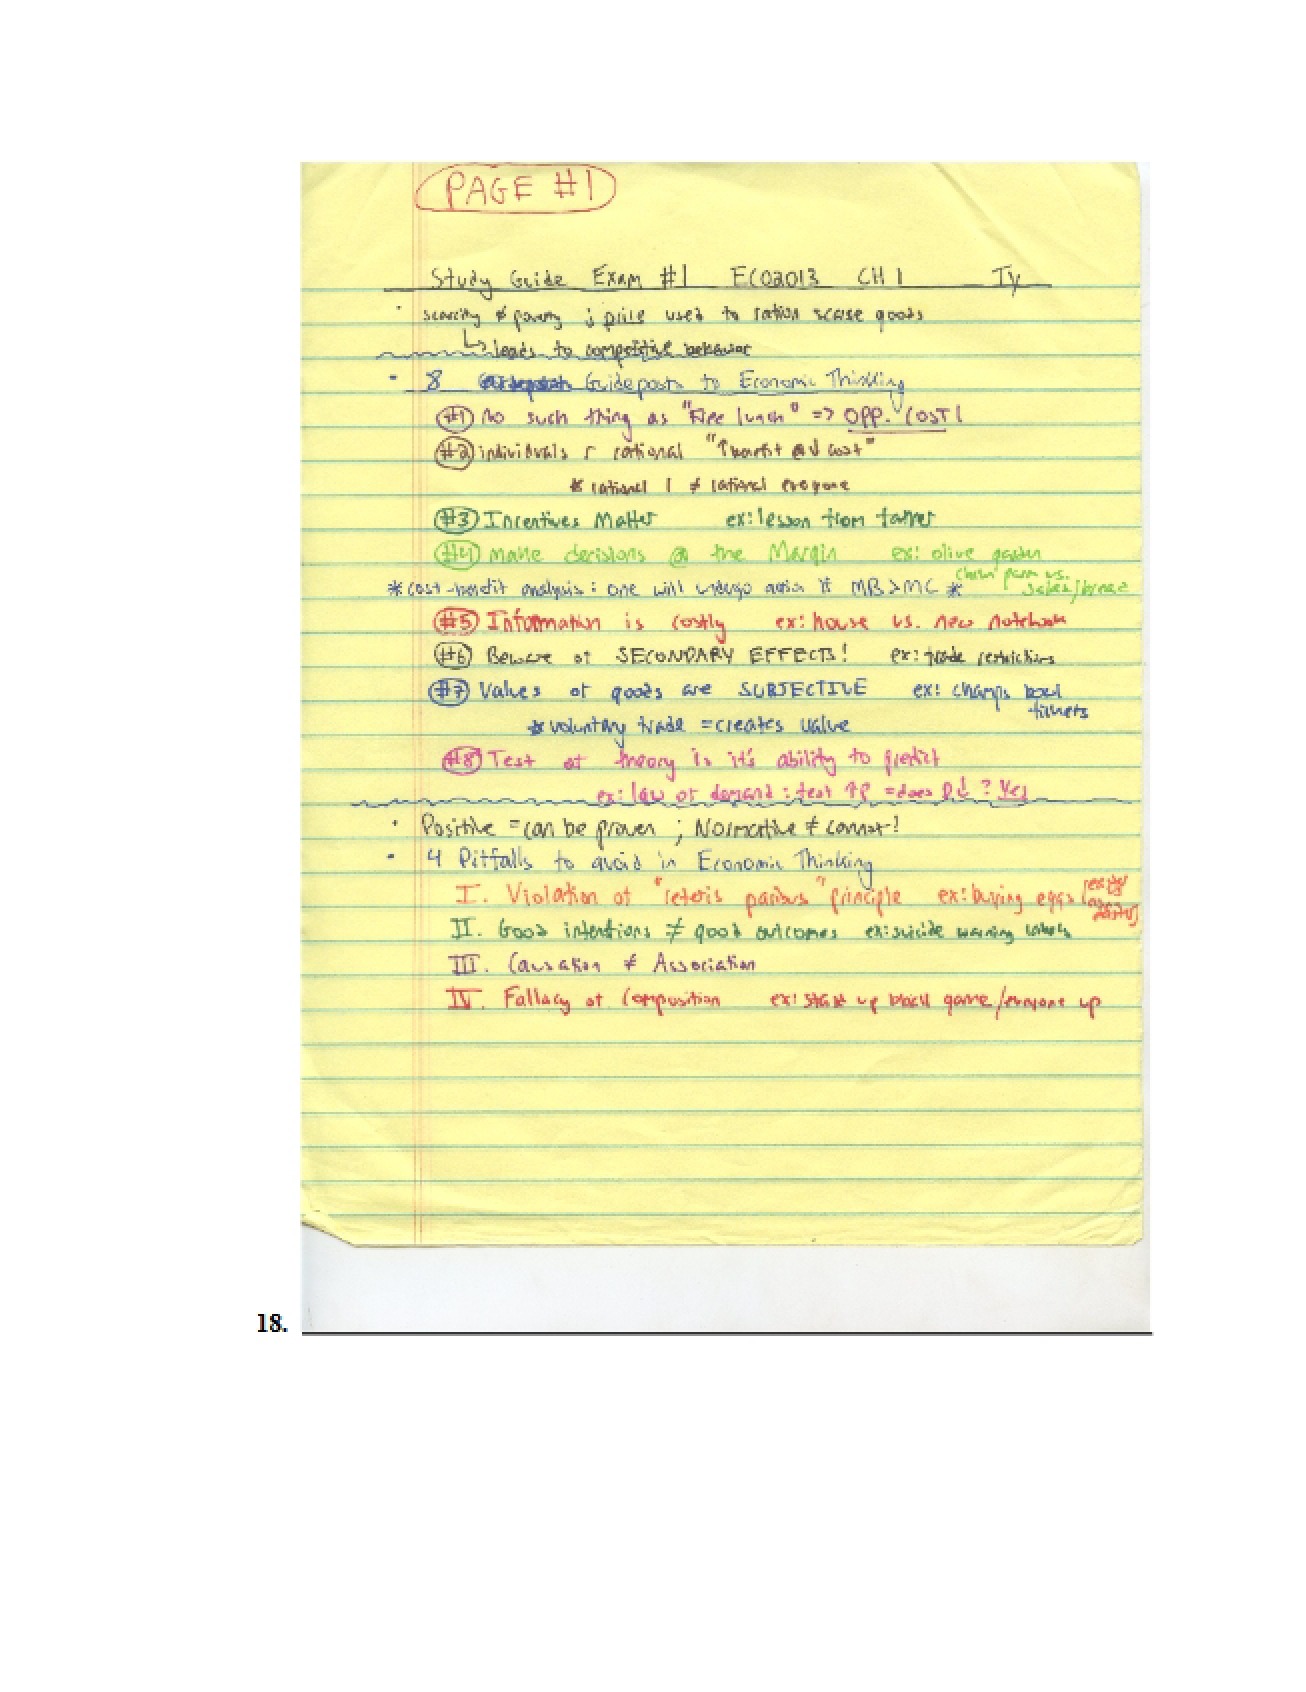 PAGE #1
Study Guide Exam #1 ECO2013 CH 1 Ty
· scarcity ≠ poverty ; price used to ration scarse goods
↳ leads to competitive behavior
· 8 Guideposts to Economic Thinking
#1 no such thing as "Free lunch" => OPP. COST!
#2 individuals r rational "↑benefit @↓ cost"
* rational 1 ≠ rational everyone
#3 Incentives Matter ex: lesson from farmer
#4 make decisions @ the Margin ex: olive garden
chicken parm vs.
*cost-benefit analysis: one will undergo action if MB>MC * salad/bread
#5 Information is costly ex: house vs. new notebook
#6 Beware of SECONDARY EFFECTS! ex: trade restrictions
#7 Values of goods are SUBJECTIVE ex: champs bowl
tickets
* voluntary trade = creates value
#8 Test of theory is it's ability to predict
ex: law of demand: test ↑P = does D↓ ? Yes
· Positive = can be proven ; Normative ≠ cannot!
· 4 Pitfalls to avoid in Economic Thinking
I. Violation of "ceteris paribus" principle ex: buying eggs
II. Good intentions ≠ good outcomes ex: suicide warning labels
III. Causation ≠ Association
IV. Fallacy of Composition ex: stand up game/everyone up
18.